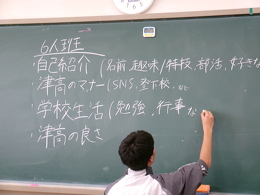 6人班
・自己紹介(名前,趣味/特技,部活,好きな
・津高のマナー(SNS,登下校,etc
・学校生活(勉強,行事な
・津高の良さ